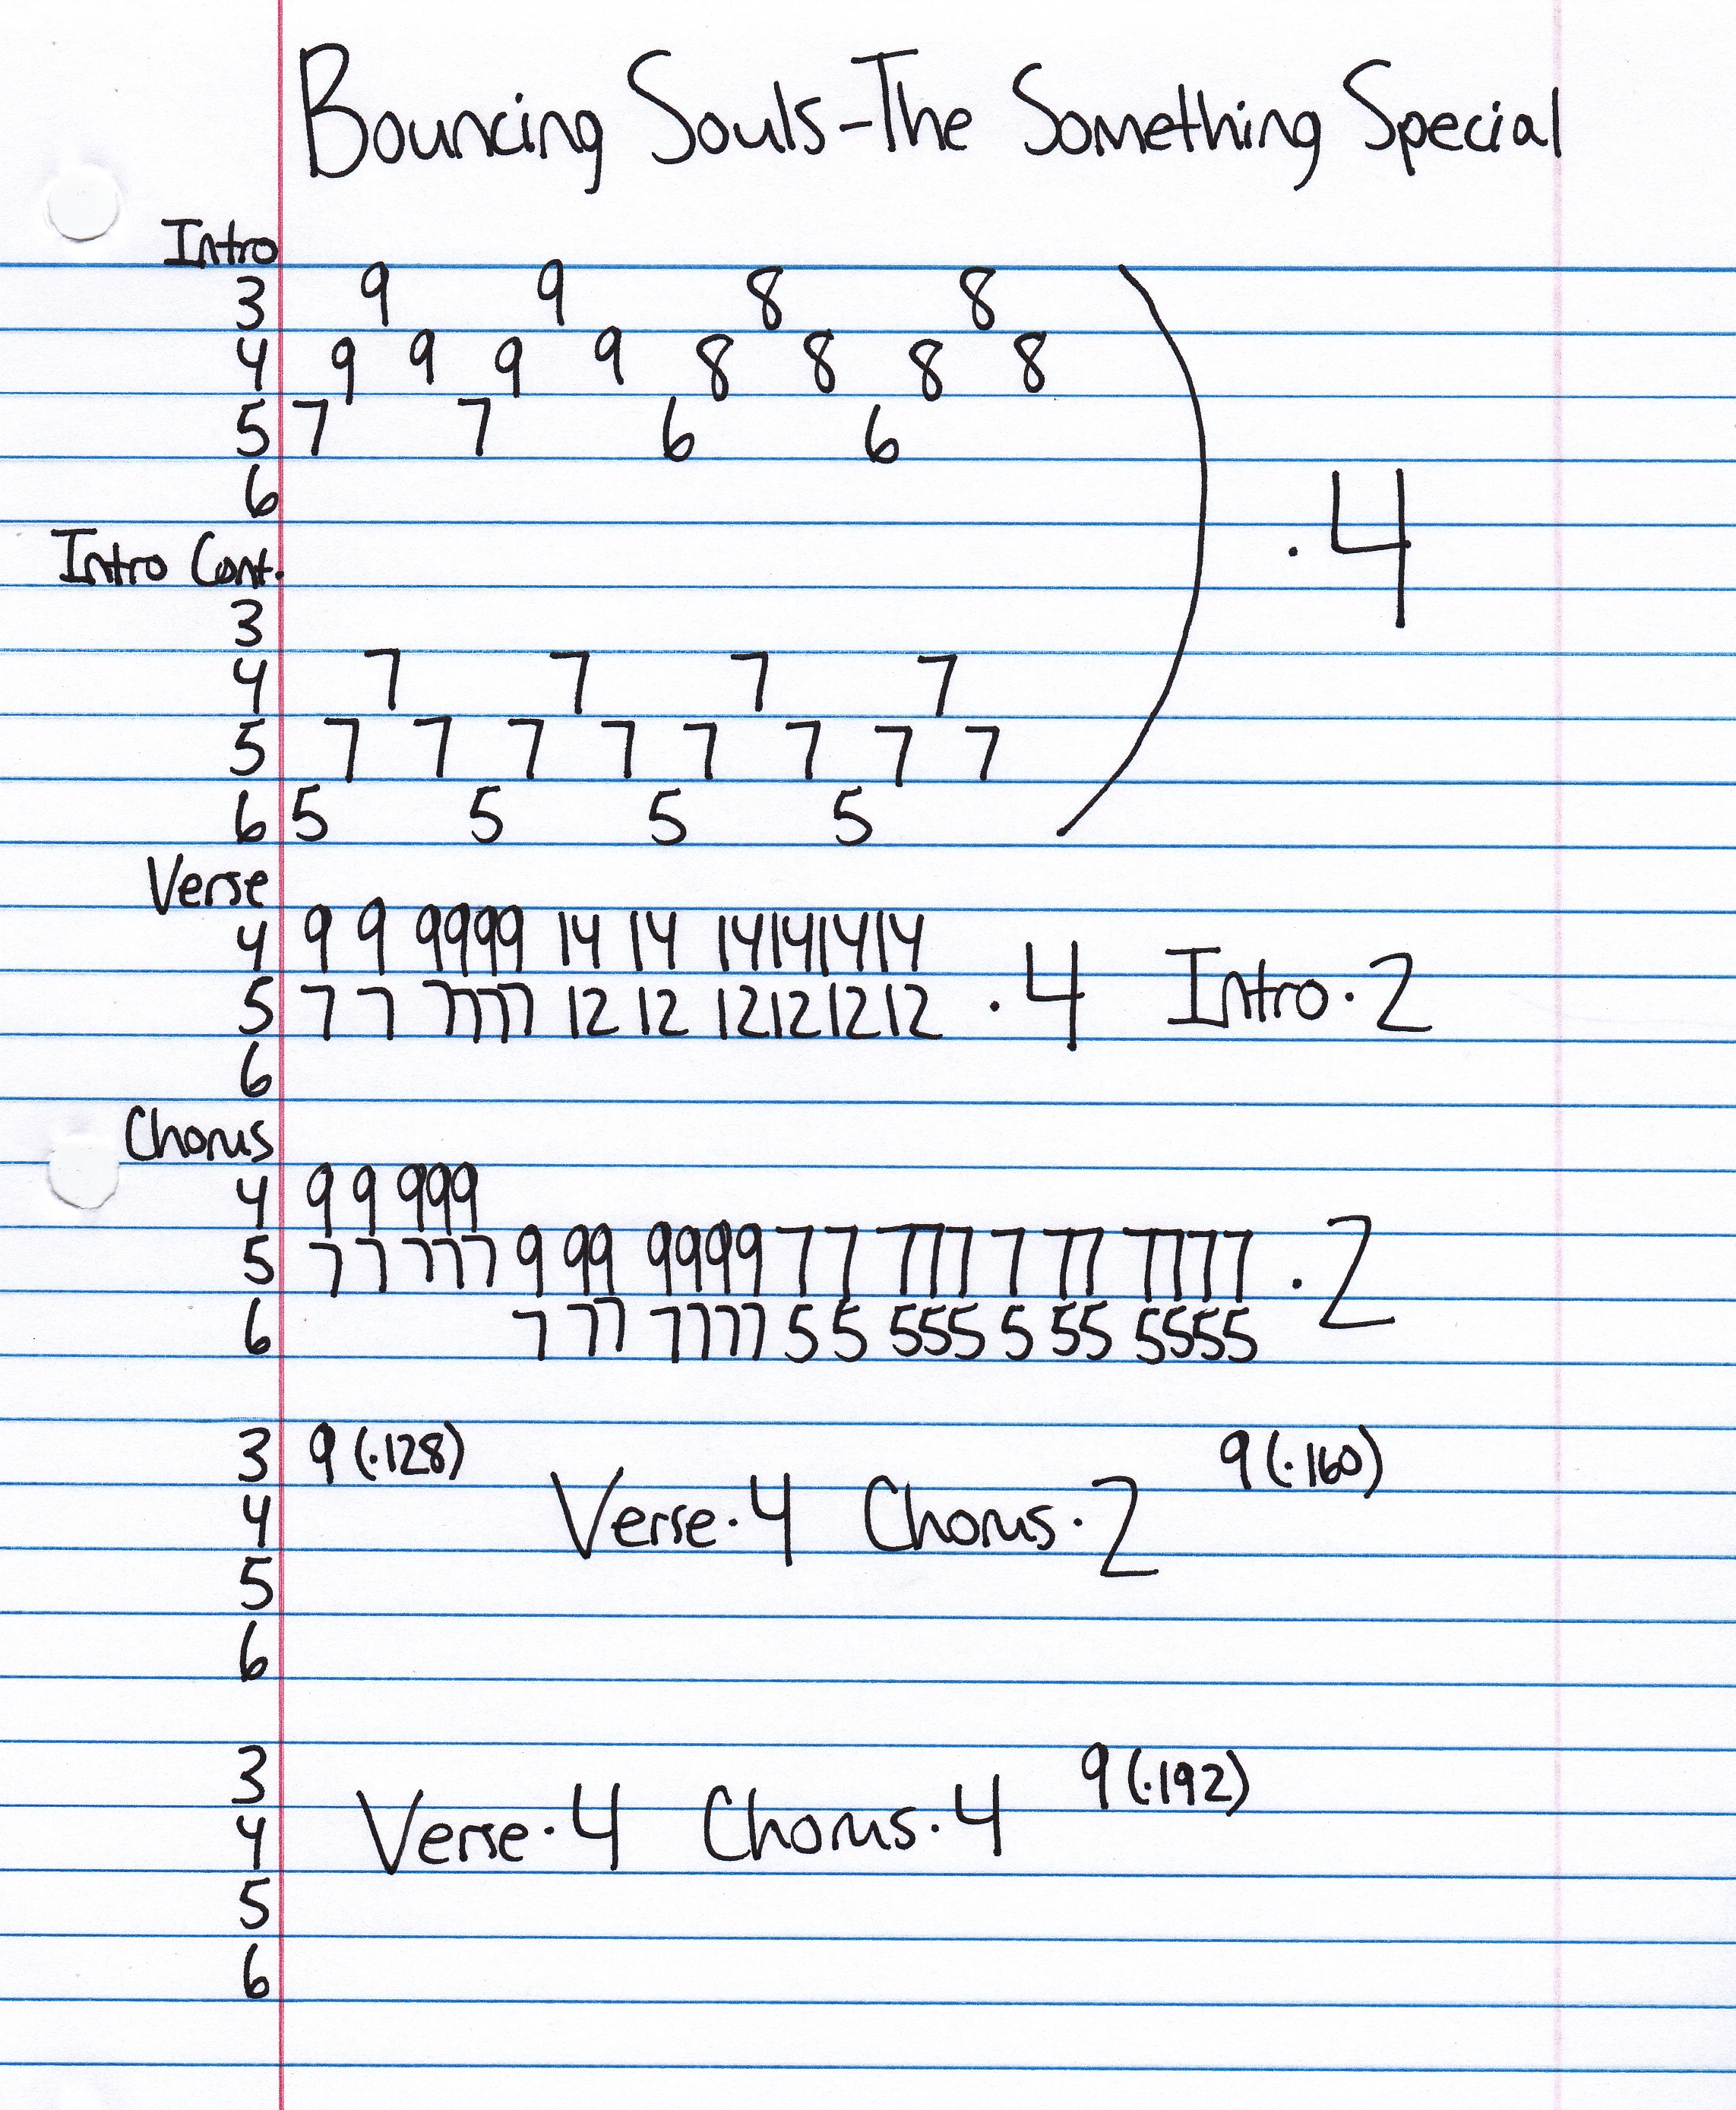 Bouncing Souls-The Something Special
Intro
3 9 9 8 8
4 9 9 9 9 8 8 8 8
5 7 7 6 6
6
·4
Intro Cont.
3
4 7 7 7 7
5 7 7 7 7 7 7 7 7
6 5 5 5 5
Verse
4 9 9 9999 14 14 14141414
5 7 7 7777 12 12 12121212 ·4 Intro·2
6
Chorus
4 9 9 999
5 7 7 777 9 99 9999 7 7 777 7 77 7777 ·2
6 7 77 7777 5 5 555 5 55 5555
3 9(·128) 9(·160)
4 Verse·4 Chorus·2
5
6
3 9(·192)
4 Verse·4 Chorus·4
5
6